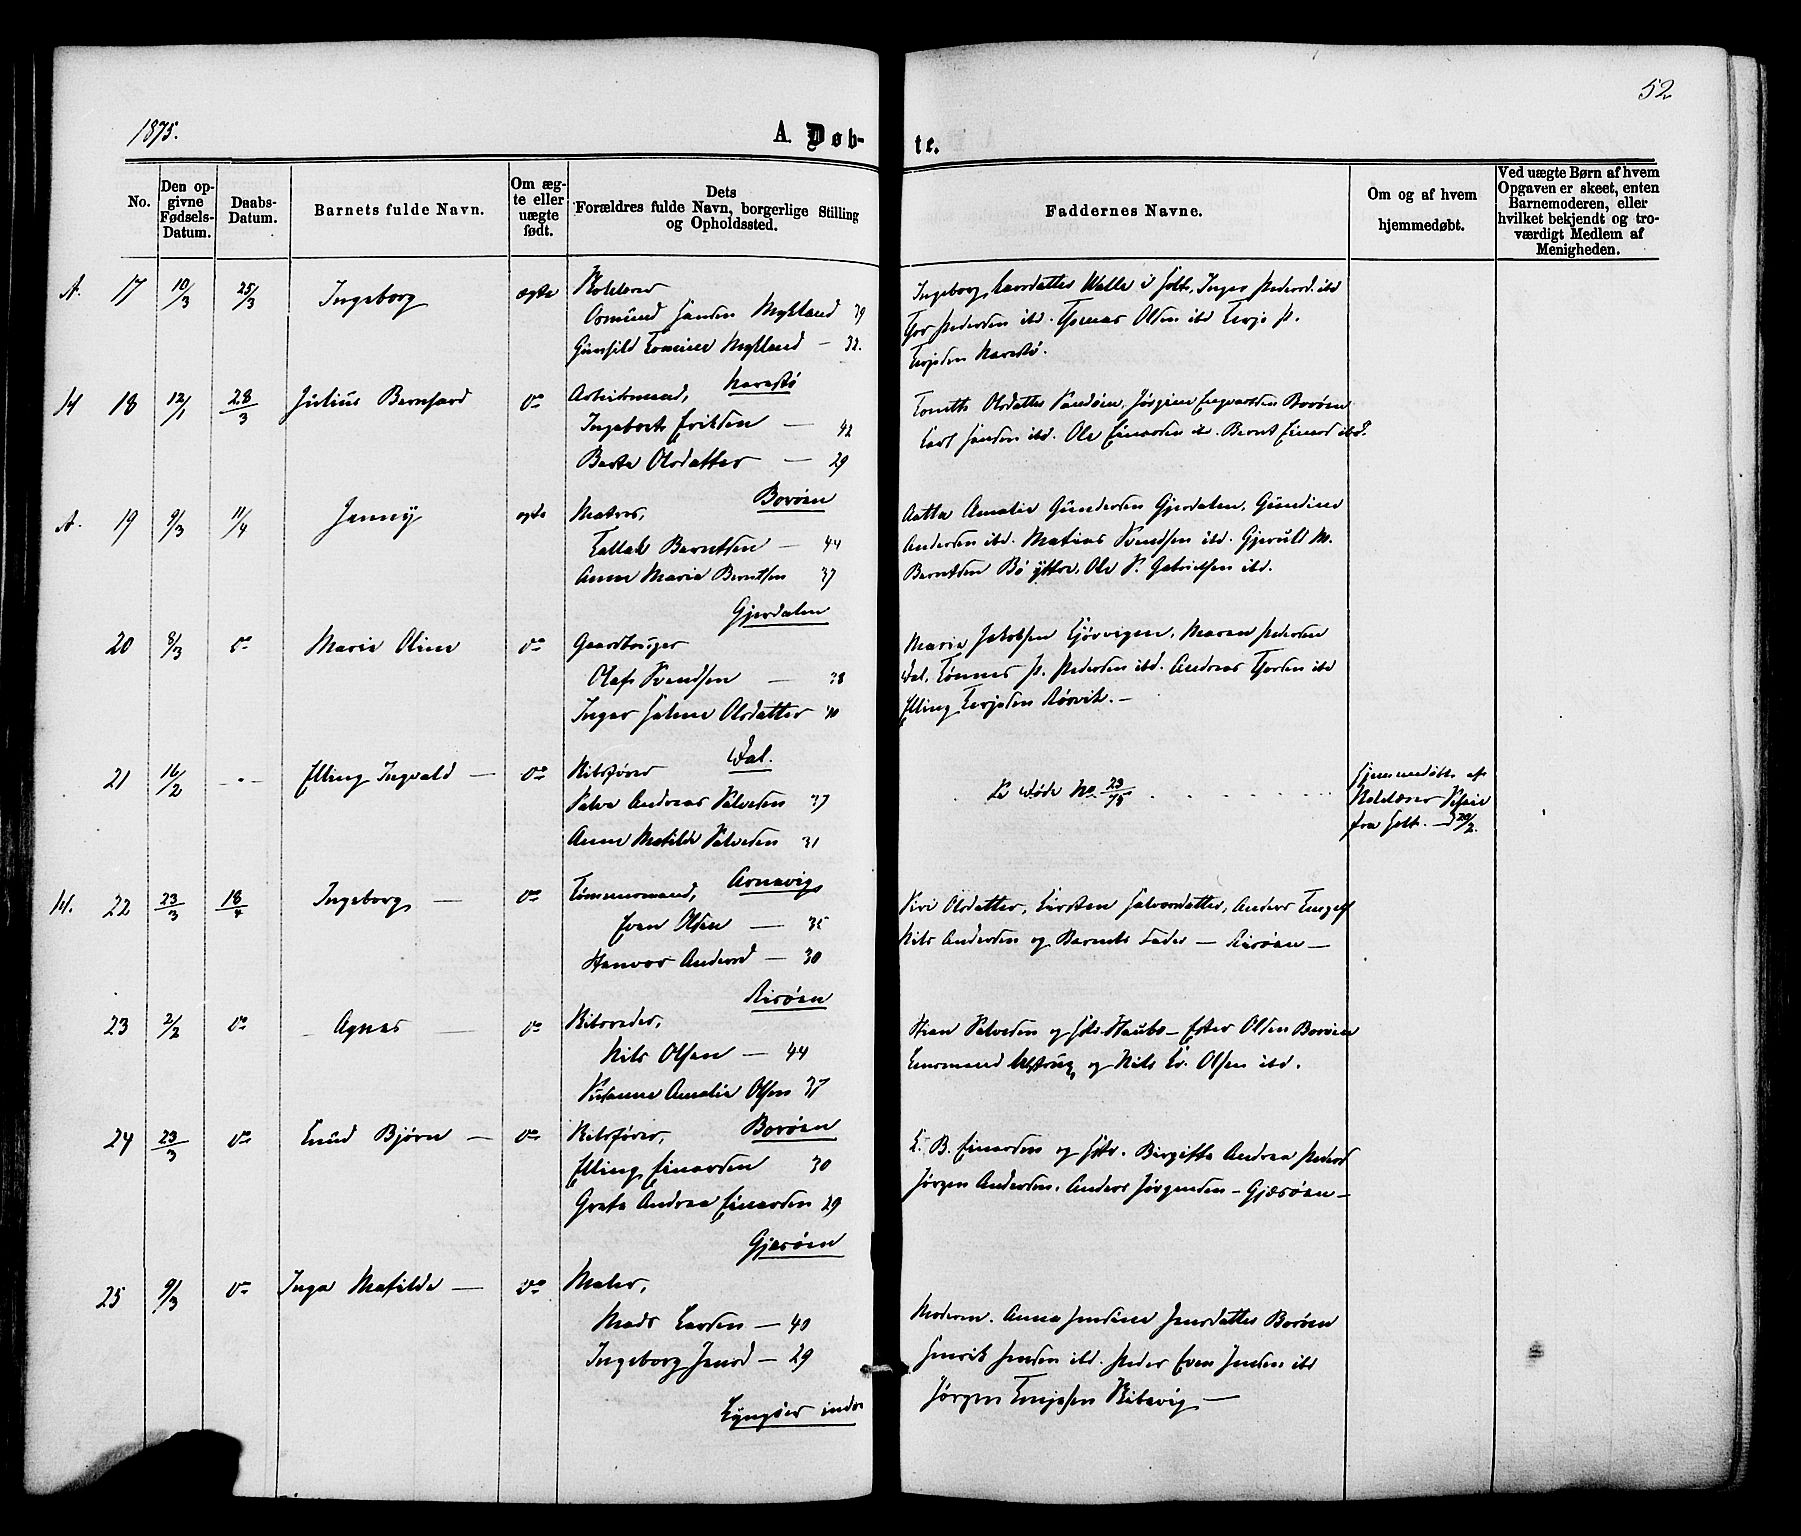 52
1875.
A. Døb-
te.
No.
Den opgivne Fødsels-Datum.
Daabs-Datum.
Barnets fulde Navn.
Om ægte eller uægte født.
Dets Forældres fulde Navn, borgerlige Stilling og Opholdssted.
Faddernes Navne.
Om og af hvem hjemmedøbt.
Ved uægte Børn af hvem Opgaven er skeet, enten Barnemoderen, eller hvilket bekjendt og troværdigt Medlem af Menigheden.
A. 17 10/3 25/3 Ingeborg ægte
Osmund Hansen Mykland 39
Gunhild Mykland — 32.
Narestø
Ingeborg Larsdatter Walle i Holt, Inger Pedersd. ibd
Tor Pedersen ibd. Tomas Olsen ibd Terje P.
Terjesen Narestø.
H 18 12/1 28/3 Julius Bernhard do
Arbeidsmand,
Ingebret Eriksen — 42
Berte Olsdatter — 29
Borøen
Olsdatter Sandøen, Jørgine Borøen
Carl Hansen ibd. Ole Einarsen ibd. Bernt Einars ibd.
A. 19 9/3 11/4 Jenny egte
Matros,
Tallak Berntsen — 44
Anne Marie Berntsen 37
Gjerdalen
Aatta Amalie Gundersen Gjerdalen, Gundine
Andersen ibd. Matias Svendsen ibd. Gjerull M.
Berntsen Bø yttre, Ole S. Gabrielsen ibd.
20 8/3 do Marie Oline do
Gaardbruger
Olaf Svendsen — 38
Inger Helene Olsdatter 40
Dal.
Marie Jakobsen Maren Pedersen
Dal, Tønnes P. Pedersen ibd. Andreas Torsen ibd
Elling Terjesen Rørvik. —
21 16/2 - - Elling Ingvald — do
Skibsfører
Salve Andreas Salvesen 37
Anne Matilde Salvesen 31
Arnevig
Se Døde No 23/75
Hjemmedøbt af
fra Holt. — d 20/2.
H. 22 23/3 18/4 Ingeborg — do
Tømmermand,
Even Olsen — 35
Anders — 30
Risøen
Siri Olsdatter, Kirsten Halvorsdatter, Anders
Nils Andersen og Barnets Fader — Risøen —
23 2/2 do - Agnes — do
Skibsreder,
Nils Olsen — 44
Susanne Amalie Olsen 37
Borøen
Salvesen og Hstr. Ester Olsen Borøen
og Nils Olsen ibd.
24 23/3 do Knud Bjørn — do
Skibsfører,
Elling Einarsen 30
Grete Andrea Einarsen 29
Gjesøen
K. B. Einarsen og Hstr. Birgitte Andrea Peders
Jørgen Andersen. Anders Jørgensen — Gjesøen —
25 9/3 do Inga Matilde — do
Maler,
Mads Larsen — 40
Ingeborg Jensd — 29
Lyngør indre
Moderen. Anna Jensine Jensdatter Borøen
Henrik Jensen ibd. Peder Even Jensen ibd
Jørgen Terjesen Kilsvig —